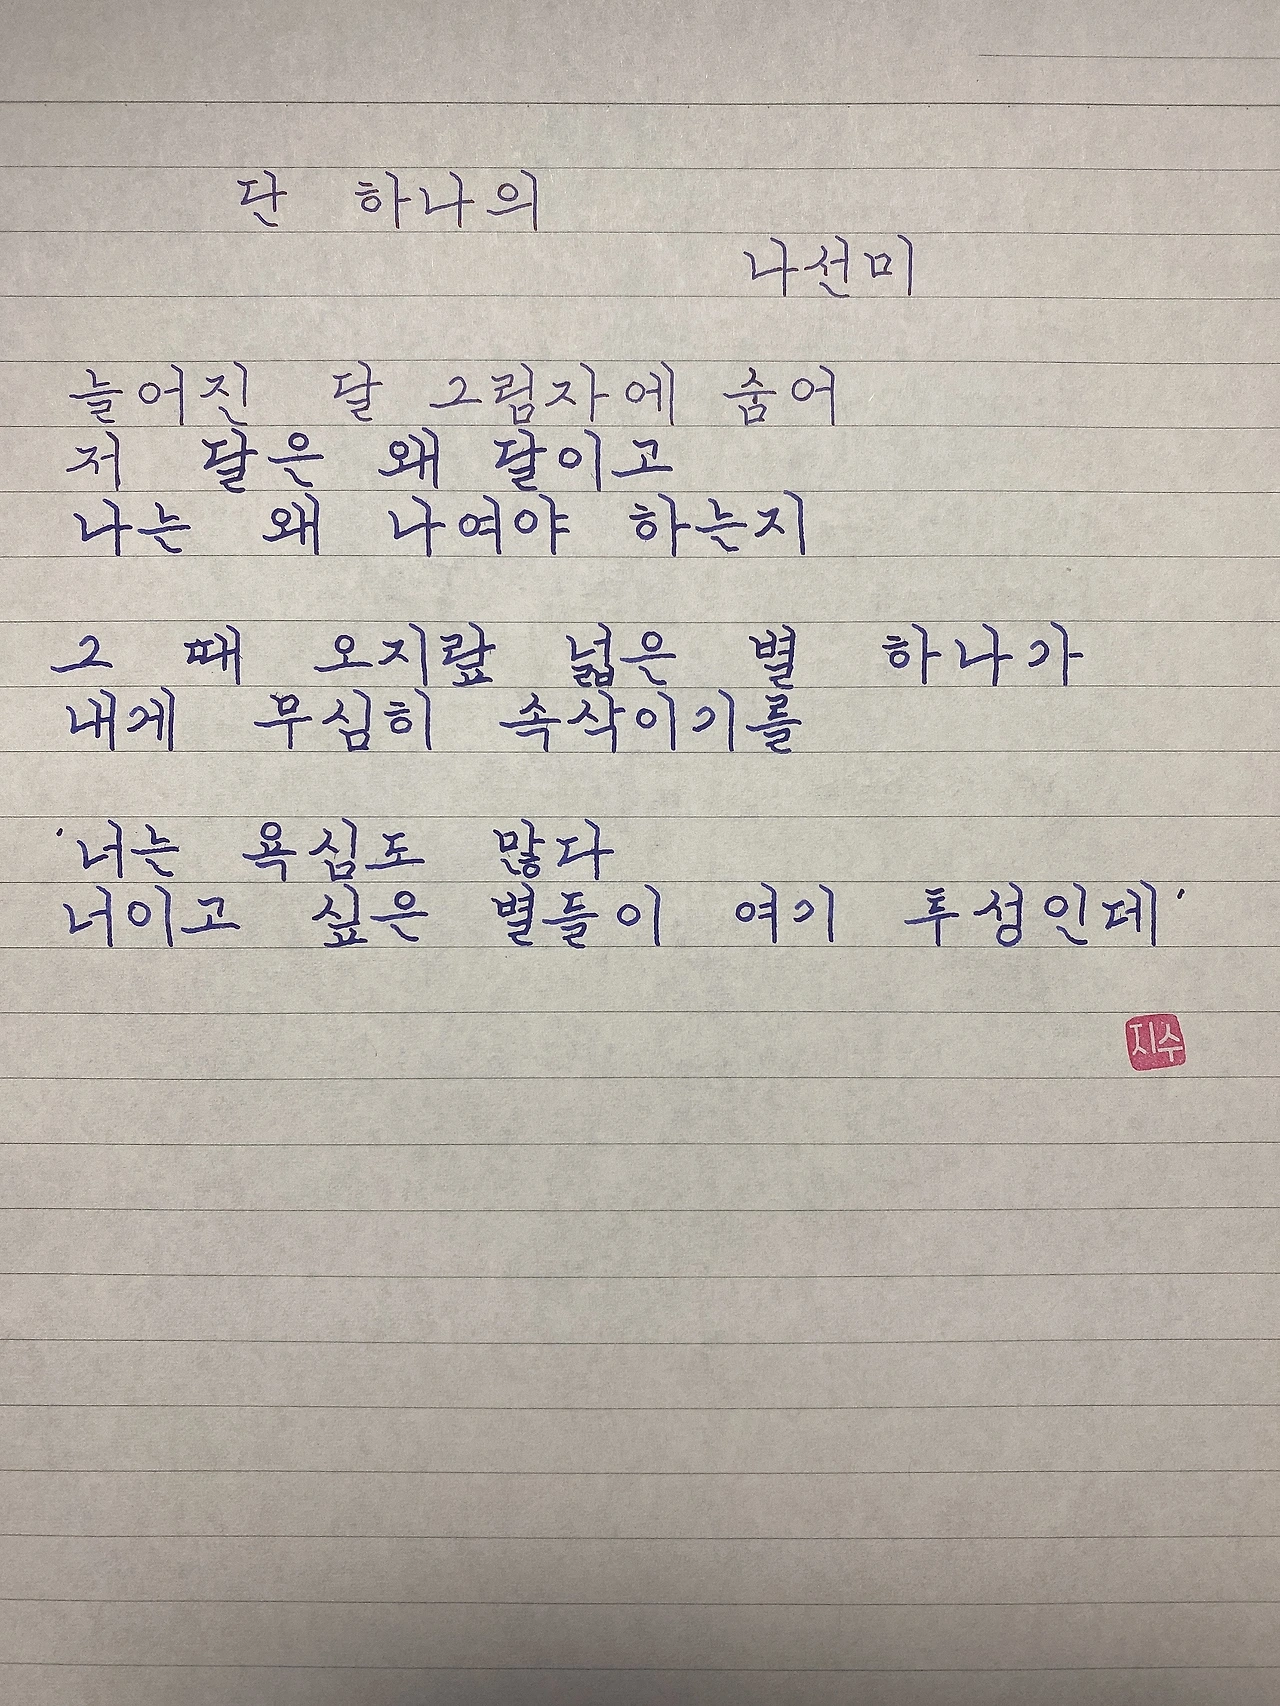 단 하나의
나선미
늘어진 달 그림자에 숨어
저 달은 왜 달이고
나는 왜 나여야 하는지
그 때 오지랖 넓은 별 하나가
내게 무심히 속삭이기를
'너는 욕심도 많다
너이고 싶은 별들이 여기 투성인데'
지수